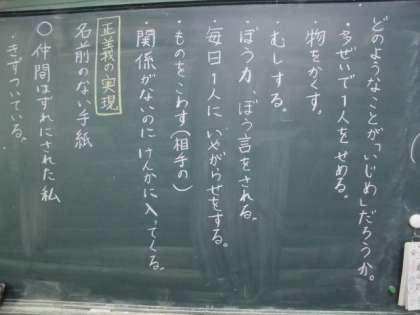 どのようなことが「いじめ」だろうか。
・多ぜいで1人をせめる。
・物をかくす。
・むしする。
・ぼう力、ぼう言をされる。
・毎日1人にいやがらせをする。
・ものをこわす(相手の)
・関係がないのにけんかに入ってくる。
正義の実現
名前のない手紙
○仲間はずれにされた私
・きずついている。